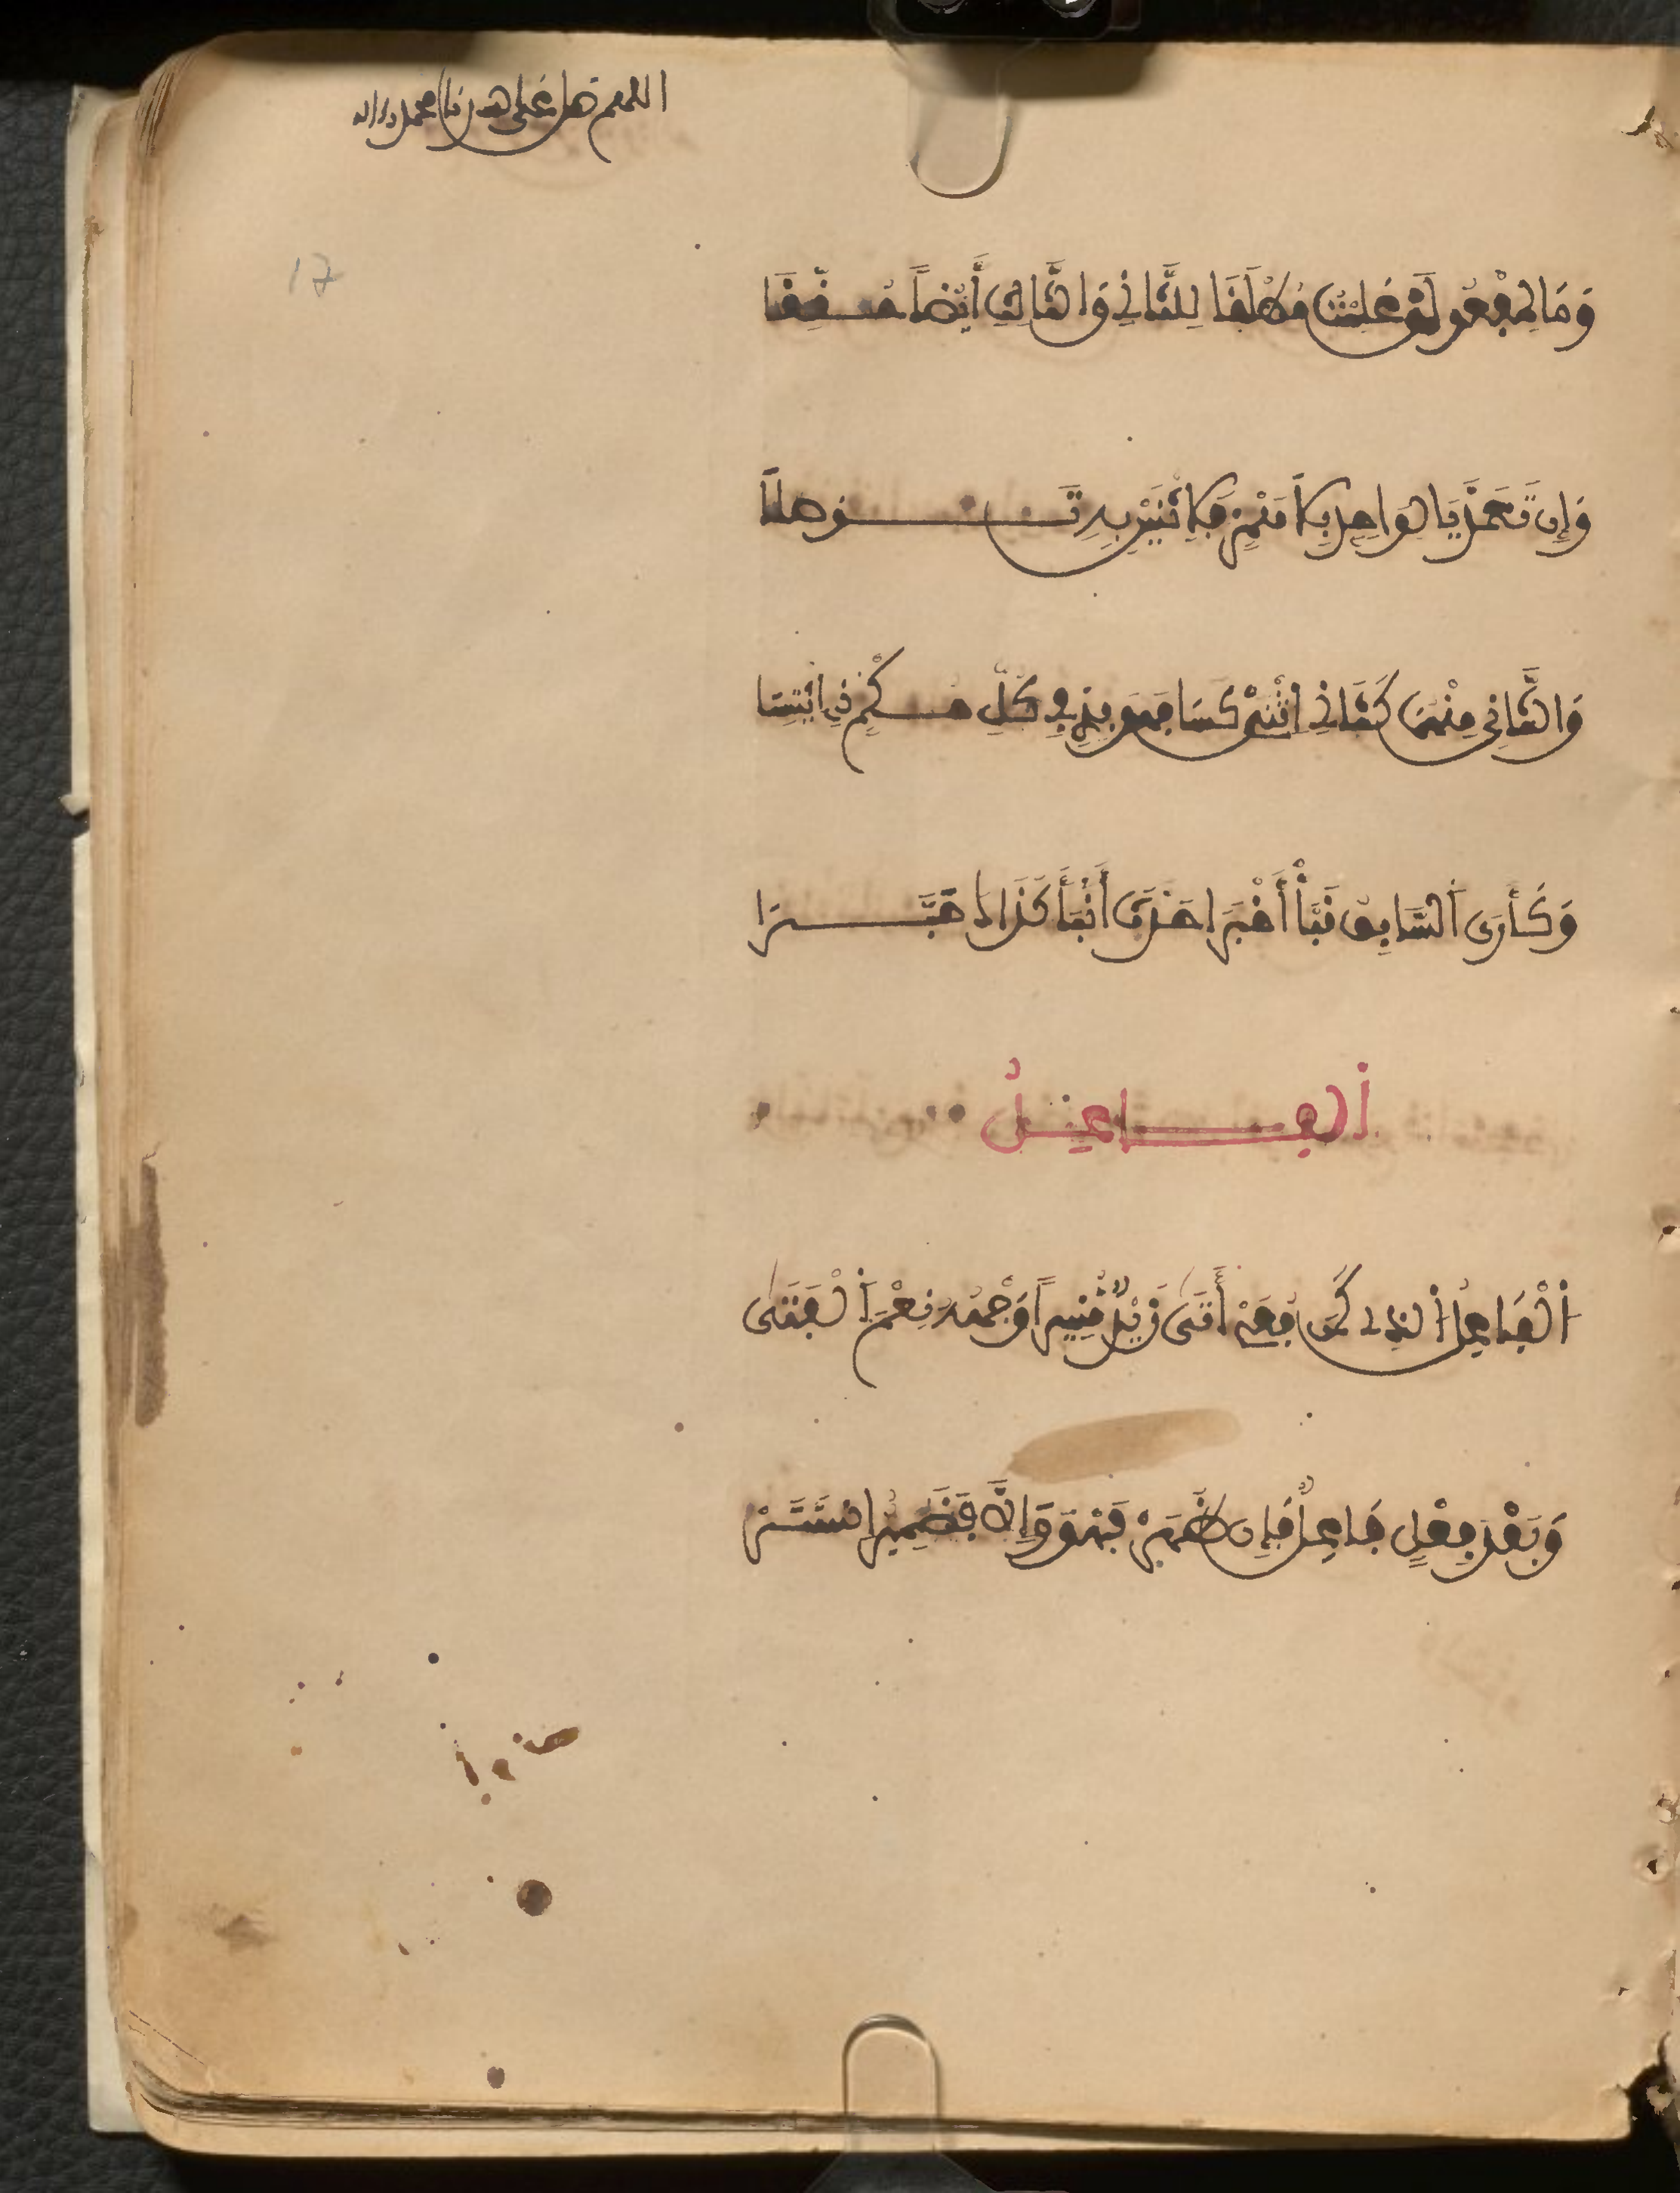 اللهم صل على سيدنا محمد وءاله
17
وَمَا لِمَفْعُولَيْ عَلِمْتُ مُطْلَقَا لِلثَّانِي وَالثَّالِثِ أَيْضاً حُقِّقَا
وَإِن تَعَدَّيَا لِوَاحِدٍ بِلَا هَمْزٍ فَلِاثْنَيْنِ بِهِ تَوَصَّلَا
وَالثَّانِي مِنْهُمَا كَثَانِي اثْنَيْ كَسَا فَهُوَ بِهِ فِي كُلِّ حُكْمٍ ذِي ائْتِسَا
وَكَأَرَى السَّابِقِ نَبَّأَ أَخْبَرَا حَدَّثَ أَنْبَأَ كَذَاكَ خَبَّرَا
اَلْفَاعِلُ
اَلْفَاعِلُ الذِي كَمَرْفُوعَيْ أَتَى زَيْدٌ مُنِيراً وَجْهُهُ نِعْمَ الْفَتَى
وَبَعْدَ فِعْلٍ فَاعِلٌ فَإِن ظَهَرْ فَهْوَ وَإِلَّا فَضَمِيرٌ اسْتَتَرْ